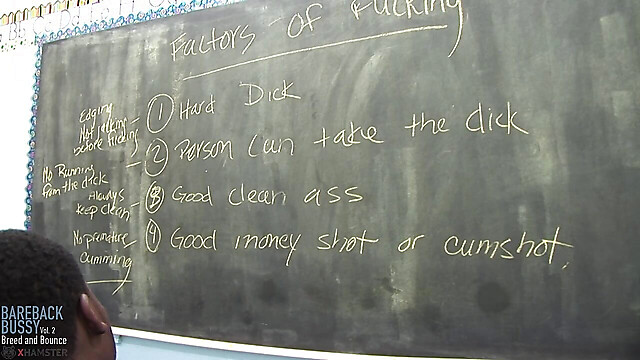 Factors of Fucking
Edging
Not jerking
before fucking
① Hard Dick
No Running
from the dick
② Person Can take the dick
Always
keep clean
③ Good clean ass
No premature
Cumming
④ Good money shot or cumshot.
BAREBACK
BUSSY Vol. 2
Breed and Bounce
XHAMSTER